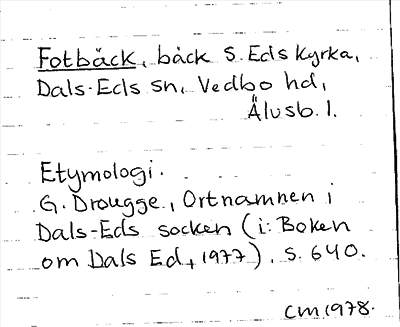 Fotbäck, bäck S. Eds Kyrka,
Dals-Eds sn, Vedbo hd,
Älvsb. l.
Etymologi.
G. Drougge, Ortnamnen i
Dals-Eds socken (i: Boken
om Dals Ed, 1977), s. 640.
CM 1978.